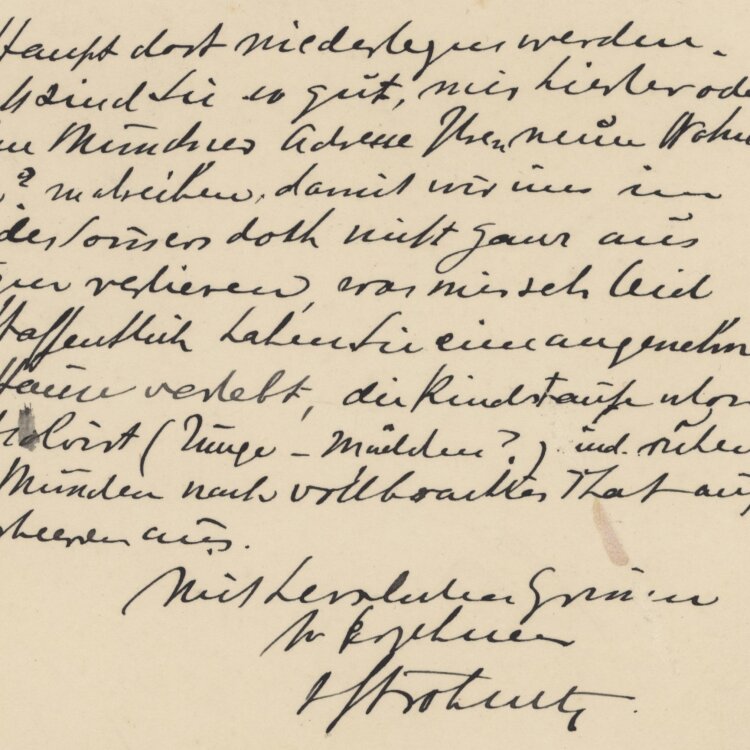 Haupt dort niederlegen werden.
sind Sie so gut, mir hierher ode
Mündner Adresse Ihre neue Wohn
? mitzuteilen, damit wir uns im
des doch nicht ganz aus
verlieren, was mir sehr leid
Hoffentlich haben Sie eine angenehm
Hause verlebt, die Kindstaufe
(Junge – Mädchen?) und ruhen
Münden nach vollbrachter That auf
aus.
Mit herzlichen Grüssen
Ihr Ergebener